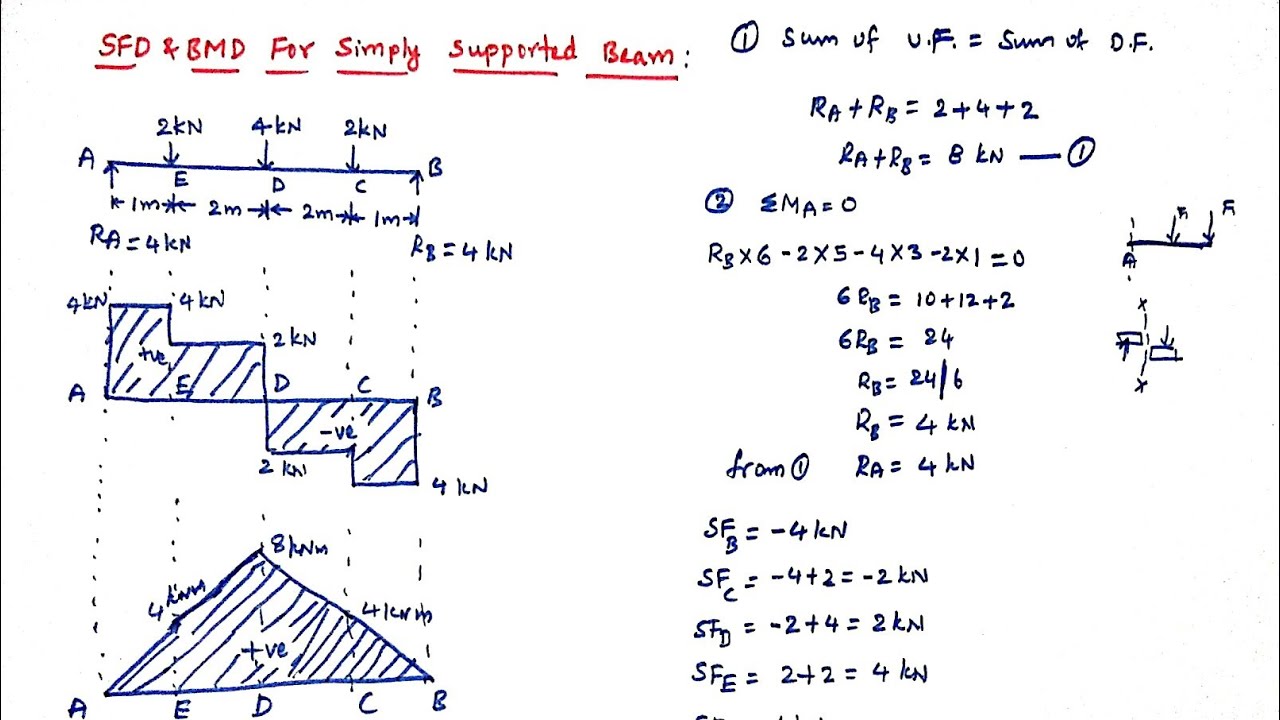 SFD & BMD For Simply Supported Beam:
2kN 4kN 2kN
A E D C B
1m 2m 2m 1m
RA = 4kN RB = 4kN
4kN 4kN
2kN
+ve
A E D C B
-ve
2 kN
4 kN
8kNm
4kNm 4kNm
+ve
A E D C B
① Sum of U.F. = Sum of D.F.
RA + RB = 2+4+2
RA + RB = 8 kN — ①
② ΣMA = 0
RB × 6 - 2×5 - 4×3 - 2×1 = 0
6RB = 10+12+2
6RB = 24
RB = 24/6
RB = 4 kN
from ① RA = 4 kN
A
x
x
SFB = -4kN
SFC = -4+2 = -2kN
SFD = -2+4 = 2kN
SFE = 2+2 = 4kN